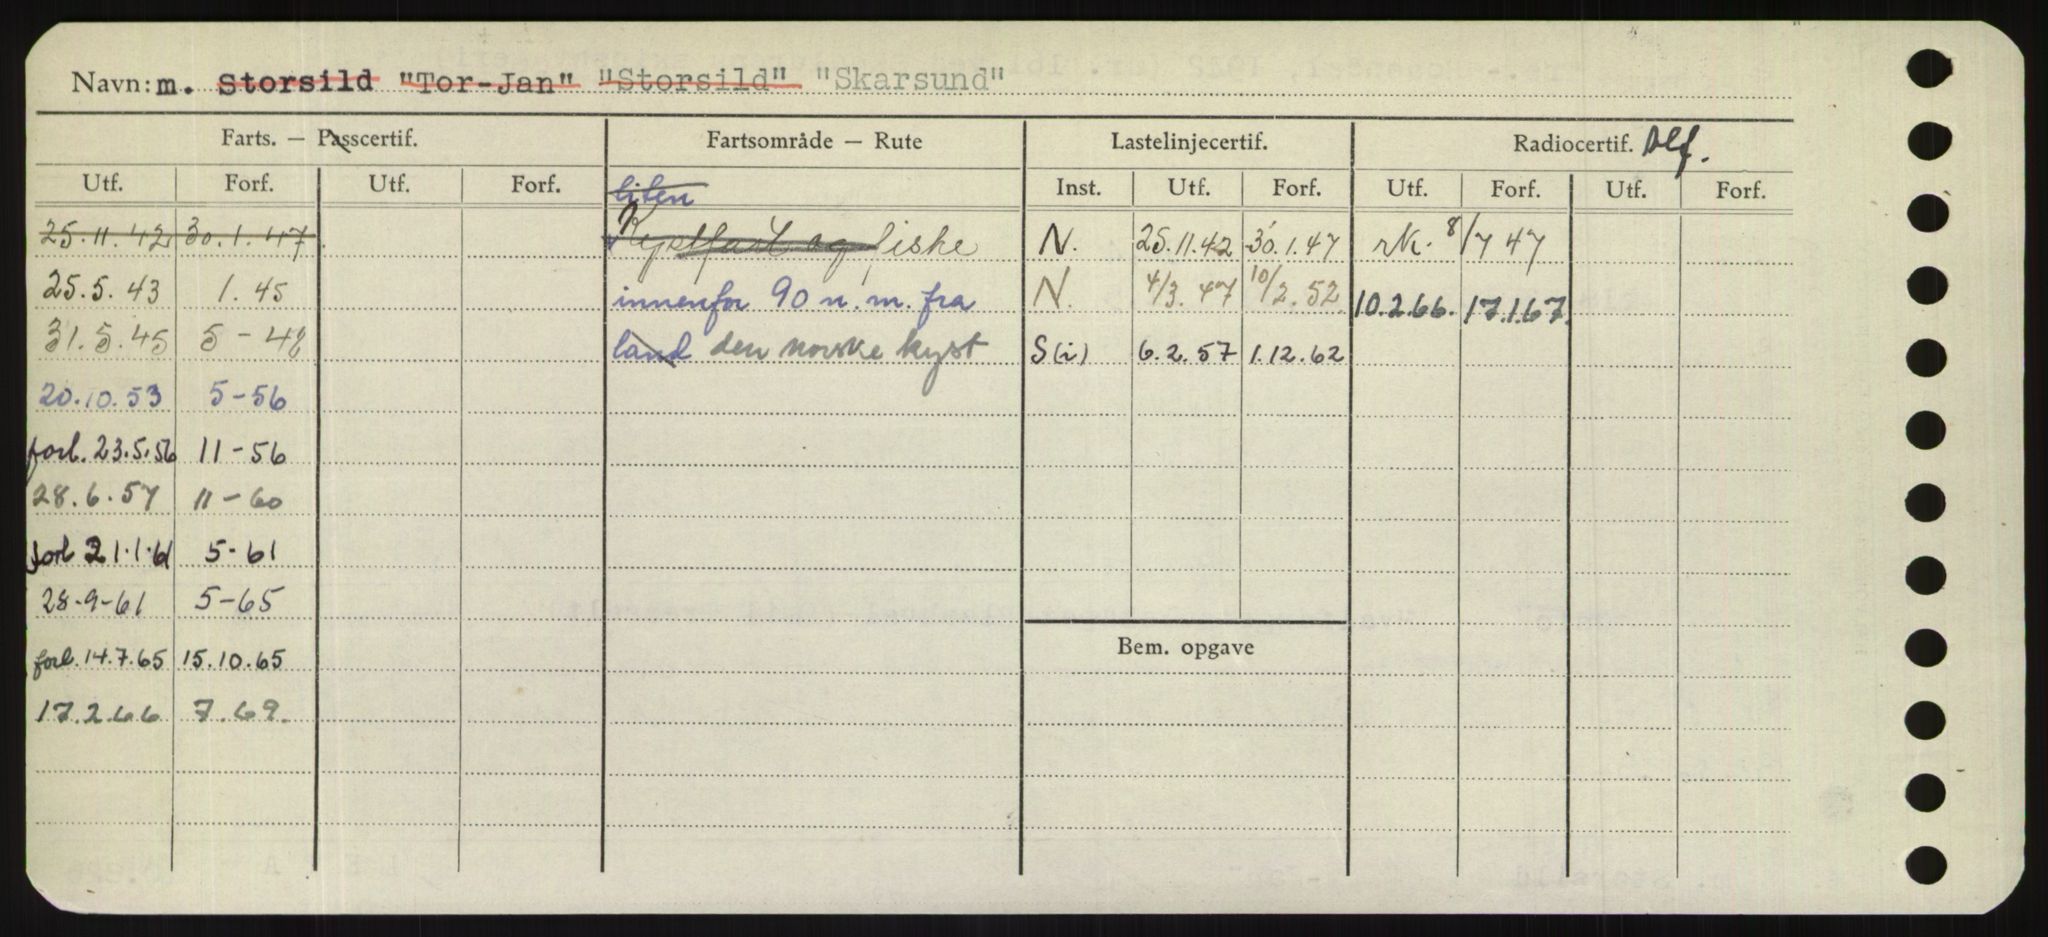 Navn: m. Storsild "Tor-Jan" "Storsild" "Skarsund"
Farts. — Passcertif. Fartsområde — Rute Lastelinjecertif. Radiocertif. Dlf.
Utf. Forf. Utf. Forf. liten Inst. Utf. Forf. Utf. Forf. Utf. Forf.
25.11.42 30.1.47 Kystfart og fiske N. 25.11.42 30.1.47 rk. 8/7 47
25.5.43 1.45 innenfor 90 n.m. fra N. 4/3.47 10/2.52 10.2.66. 17.1.67.
31.5.45 5-48 land den norske kyst S(i) 6.2.57 1.12.62
20.10.53 5-56
forl. 23.5.56 11-56
28.6.57 11-60
forl 21.1.61 5-61
28-9-61 5-65
Bem. opgave
forl. 14.7.65 15.10.65
17.2.66 7.69.